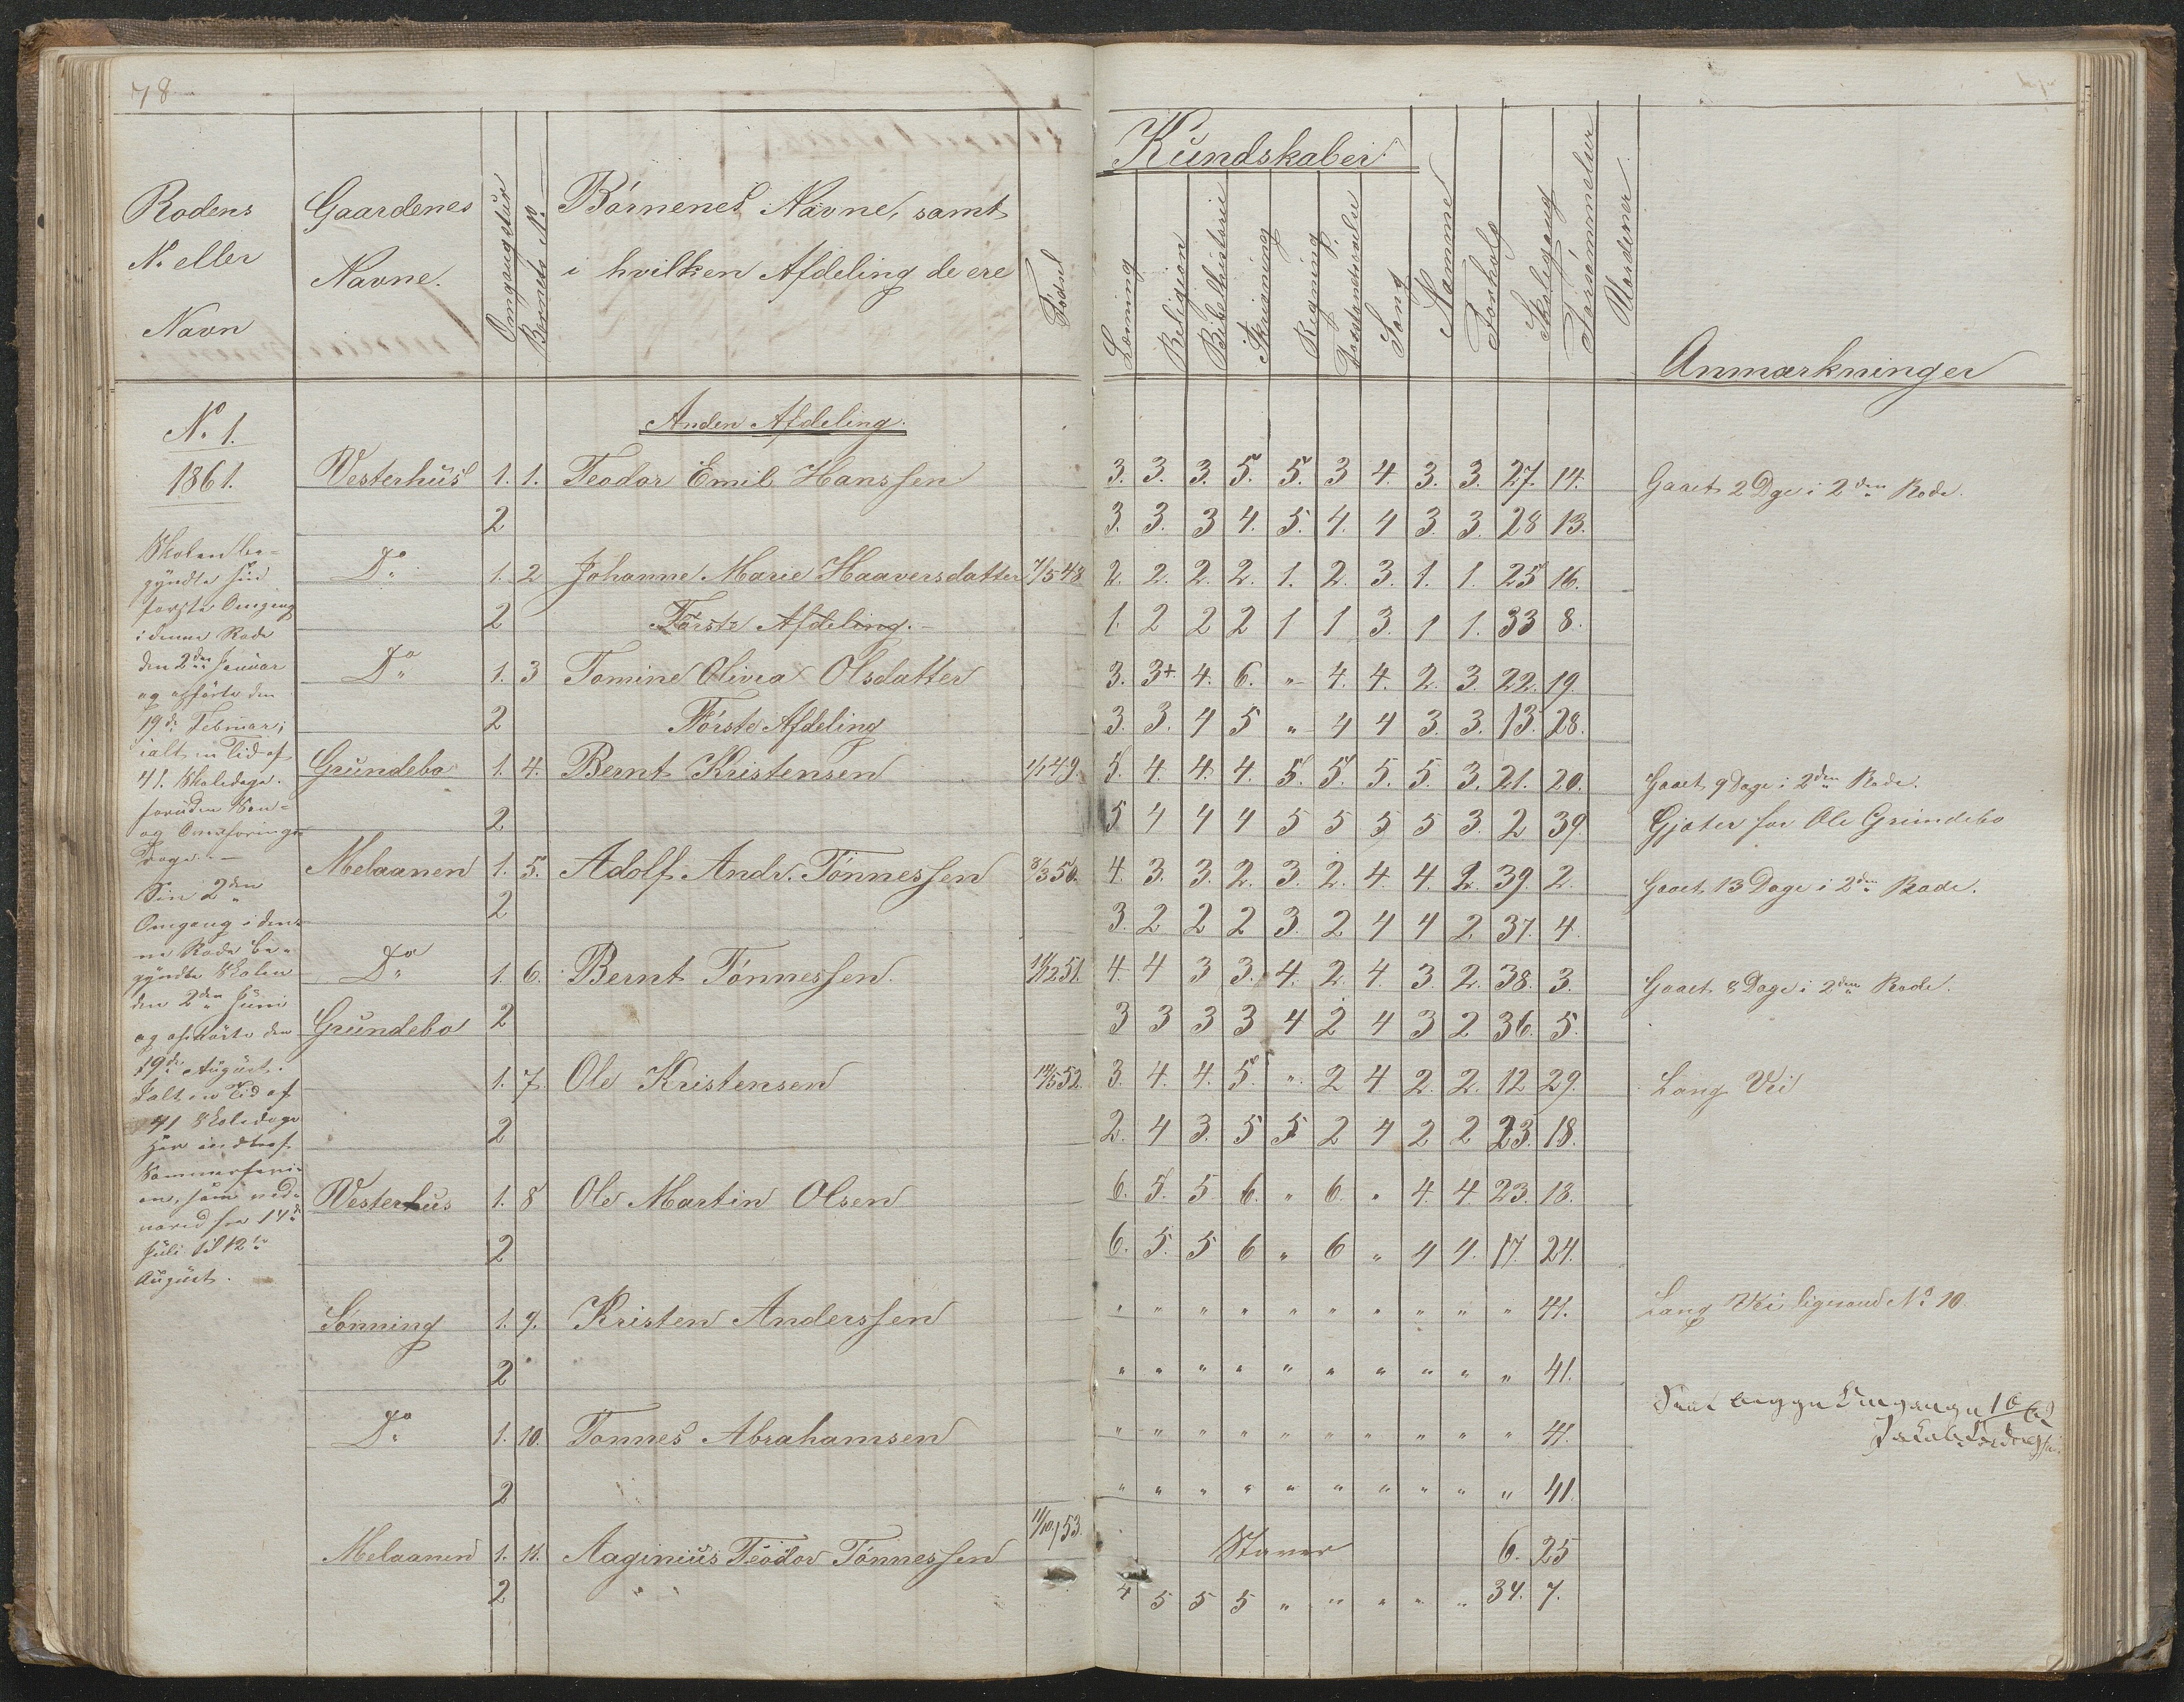 78
Rodens
No eller
Navn
Gaardenes
Navne.
Omgangstur
Barnets No
Börnenes Navne, samt
i hvilken Afdeling de ere
Födsel
Kundskaber
Læsning
Religion
Bibelhistorie
Skrivning
Regning
Forstandsøvelse
Sang
Nemme
Forhold
Skolegang
Forsömmelser
Moderner
Anmærkninger
No 1.
1861.
Skolen be-
gyndte sin
förste Omgang
i denne Rode
den 2den Januar
og ophörte den
19de Februar;
ialt en Tid af
41 Skoledage.
foruden Søn-
og Omföringes
Dage. —
Sin 2den
Omgang i den-
ne Rode be-
gyndte Skolen
den 2den Juni
og ophörte den
19de August.
Ialt en Tid af
41 Skoledage
Her indtraf
Sommerferi-
en, som ved-
vared fra 14de
Juli til 12te
August.
Anden Afdeling.
Vesterhus 1. 1. Teodor Emil Hanssen 3. 3. 3. 5. 5. 3 4. 3. 3. 27. 14. Gaaet 2 Dge i 2den Rode.
2 3. 3. 3 4. 5. 4. 4 3 3. 28 13.
Do 1. 2 Johanne Marie Haaversdatter 7/5 48 2. 2. 2. 2. 1. 2. 3. 1. 1. 25 16.
2 Förste Afdeling. 1. 2 2 2 1 1 3. 1 1. 33 8.
Do 1. 3 Tomine Olivia Olsdatter 3. 3+ 4. 6. " 4. 4. 2. 3. 22. 19.
2 Förste Afdeling 3. 3. 4 5 " 4 4 3. 3. 13. 28.
Grundebo 1. 4. Bernt Kristensen 1/1 49. 5. 4. 4. 4. 5. 5. 5. 5. 3. 21. 20. Gaaet 9 Dage i 2den Rode.
2 5 4 4 4 5 5 5 5 3. 2 39. Gjæter for Ole Grundebo
Melaanen 1. 5. Adolf Andr. Tönnessen 8/3 50. 4. 3. 3. 2. 3. 2. 4. 4. 2. 39. 2. Gaaet 13 Dage i 2den Rode.
2 3. 2 2 2 3. 2 4 4 2. 37. 4.
Do 1. 6. Bernt Tönnessen. 11/12 51. 4. 4 3 3. 4. 2. 4. 3. 2. 38. 3. Gaaet 8 Dage i 2den Rode.
Grundebo 2 3 3 3 3 4 2 4 3 2 36. 5.
1. 7 Ole Kristensen 14/5 52. 3. 4. 4. 5. " 2 4 2. 2. 12 29. Lang Vei
2 2. 4 3. 5 5 2 4 2 2 23. 18.
Vesterhus 1. 8 Ole Martin Olsen 6. 5. 5 6. " 6. " 4. 4. 23. 18.
2 6. 5. 5 6 " 6 " 4 4. 17. 24.
Sönning 1. 9. Kristen Anderssen " " " " " " " " " " 41. Lang Vei ligesaa No 10
2 " " " " " " " " " " 41.
Do 1. 10. Tönnes Abrahamsen " " " " " " " " " " 41.
2 " " " " " " " " " " 41.
Melaanen 1. 11. Aaginius Teodor Tönnessen 11/10 53. Staver 6. 25
2 " " 4 5 5 5 " " " " " 34. 7.